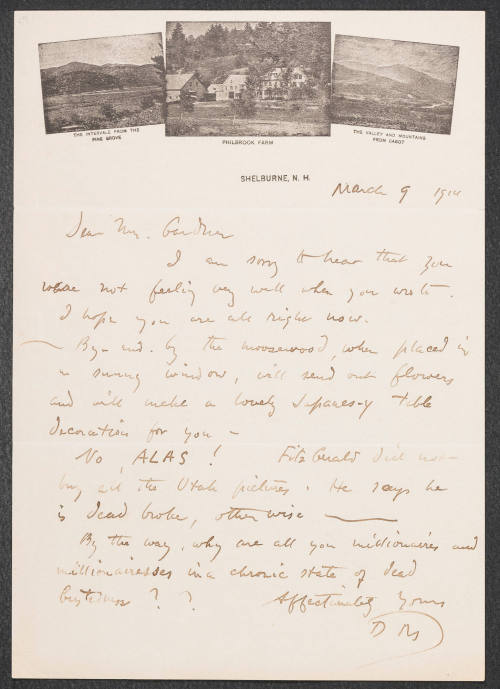 THE INTERVALE FROM THE
PINE GROVE
PHILBROOK FARM
THE VALLEY AND MOUNTAINS
FROM CABOT
SHELBURNE, N. H.
March 9 1914
Dear Mrs. Gardner
I am sorry to hear that you
were not feeling very well when you wrote.
I hope you are all right now.
By-and-by the moosewood, when placed in
a sunny window, will send out flowers
and will make a lovely Japanes-y table
decoration for you -
No, ALAS! FitzGerald did not
buy all the Utah pictures. He says he
is dead broke, otherwise
By the way, why are all you millionaires and
millionairesses in a chronic state of dead
bustedness ? ?
Affectionately Yours